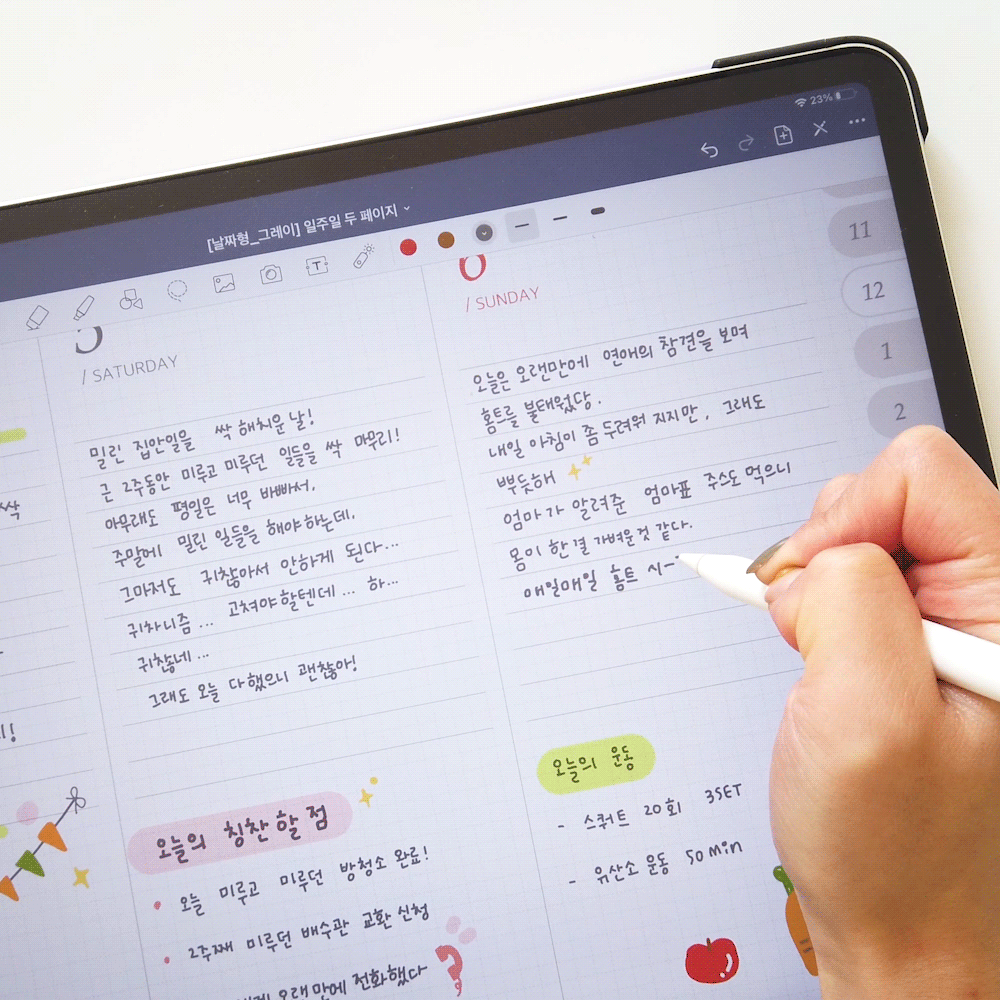 23%
[날짜형_그레이] 일주일 두 페이지
T
5
/ SATURDAY
밀린 집안일을 싹 해치운 날!
근 2주동안 미루고 미루던 일들을 싹 마무리!
아무래도 평일은 너무 바빠서,
주말에 밀린 일들을 해야 하는데,
그마저도 귀찮아서 안하게 된다...
귀차니즘... 고쳐야 할텐데... 하...
귀찮네...
그래도 오늘 다했으니 괜찮아!
오늘의 칭찬할 점
오늘 미루고 미루던 방청소 완료!
2주째 미루던 배수관 교환 신청
오랜만에 전화했다
6
/ SUNDAY
오늘은 오랜만에 연애의 참견을 보며
홈트를 불태웠당.
내일 아침이 좀 두려워 지지만, 그래도
뿌듯해
엄마가 알려준 엄마표 주스도 먹으니
몸이 한결 가벼운 것 같다.
매일매일 홈트 시
오늘의 운동
- 스쿼트 20회 3SET
- 유산소 운동 50min
11
12
1
2
싹
!